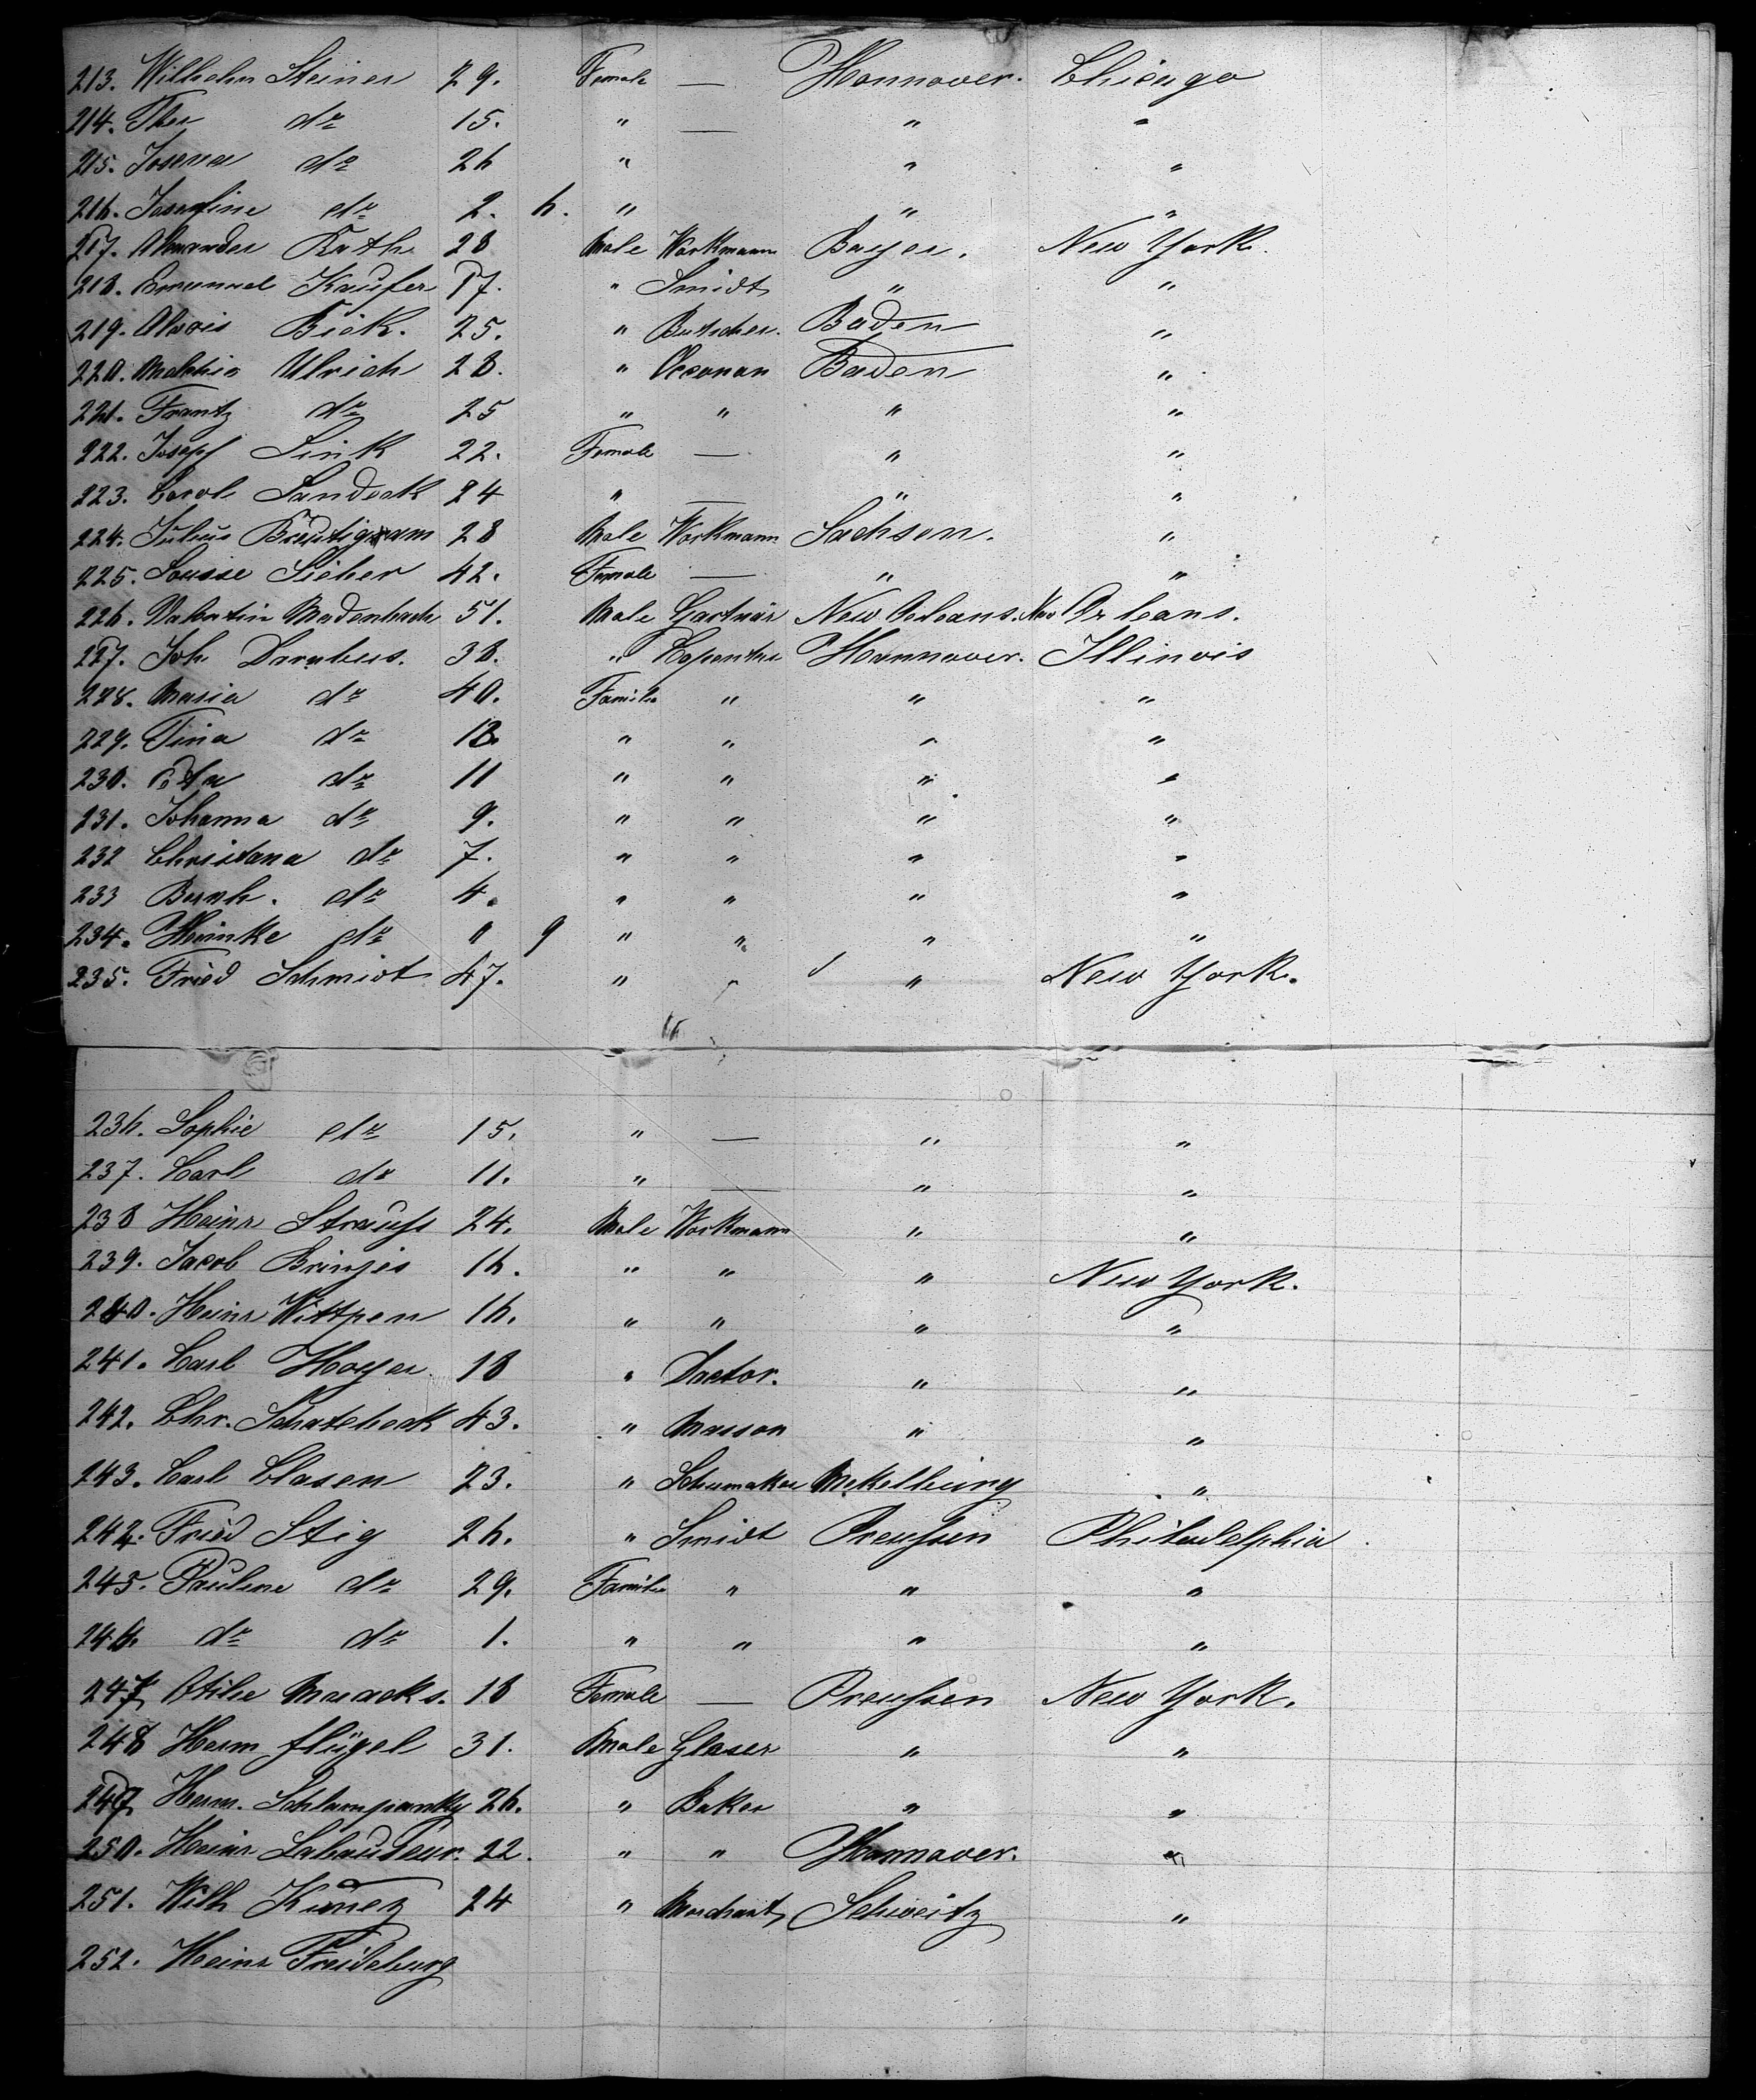 213. Wilhelm Steiner 29. Female — Hannover. Chicago
214. Ther do 15. " — " "
215. Josena do 26 " " "
216. Josefine do 2. 6. " " "
217. Alexander Roth 28 Male Workmann Bayer. New York.
218. Emanuel Kaufer 17. " Smidt " "
219. Alovis Bick. 25. " Butscher. Baden "
220. Melchior Ulrich 28. " Oeconom Baden "
221. Frantz do 25 " " " "
222. Josepf Link 22. Female — " "
223. Carol Landeck 24 " — " "
224. Julius Breutigam 28 Male Workmann Sachsen. "
225. Lousse Sieher 42. Female — " "
226. Valentin Madenbach 51. Male Gartnär New Orleans. New Orleans.
227. Joh 38. " Capenter Hannover. Illinois
228. Maria do 40. Familie " " "
229. Tina do 13. " " " "
230. do 11 " " " "
231. Johanna do 9. " " " "
232 Christana do 7. " " " "
233 Bernh. do 4. " " " "
234. Heinke do " 9 " " " "
235. Fried Schmidt 47. " " New York.
236. Sophie do 15. " — " "
237. Carl do 11. " — " "
238 Heinr Strauss 24. Male Workmann " "
239. Jacob Brinjes 16. " " " New York.
240. Heinr Wittpen 16. " " " "
241. Carl Hoyer 18 " Doctor. " "
242. Chr. Schatebeck 43. " Masson " "
243. Carl Clasen 23. " Schumaker Mekelburg "
244. Fried Stig 26. " Smidt Preussen Philadelphia
245. Pauline do 29. Familie " " "
246. do do 1. " " " "
247. Otilie Maracks. 18 Female — Preussen New York.
248 Herm flügel 31. Male Glaser " "
249 Herm. Schlampanky 26. " Baker " "
250. Heinr 22. " " Hannover. "
251. Wilh Künez 24 " Merchant Schweitz "
252. Heinr Freideburg